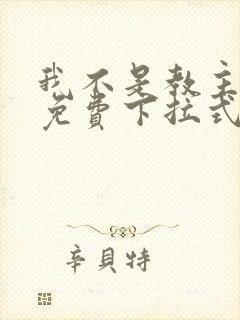 我不是教主
免費下拉式
辛貝特